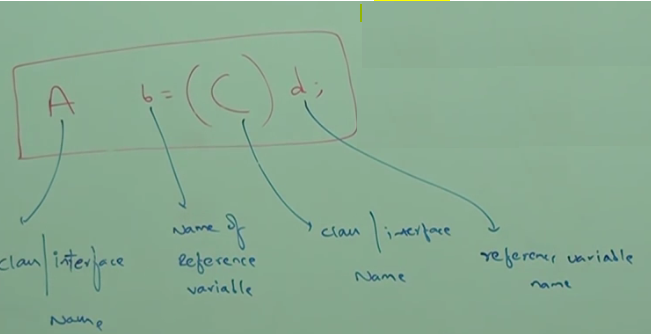 A b = (C) d;
class/interface
Name
Name of
reference
variable
class / interface
Name
reference variable
name